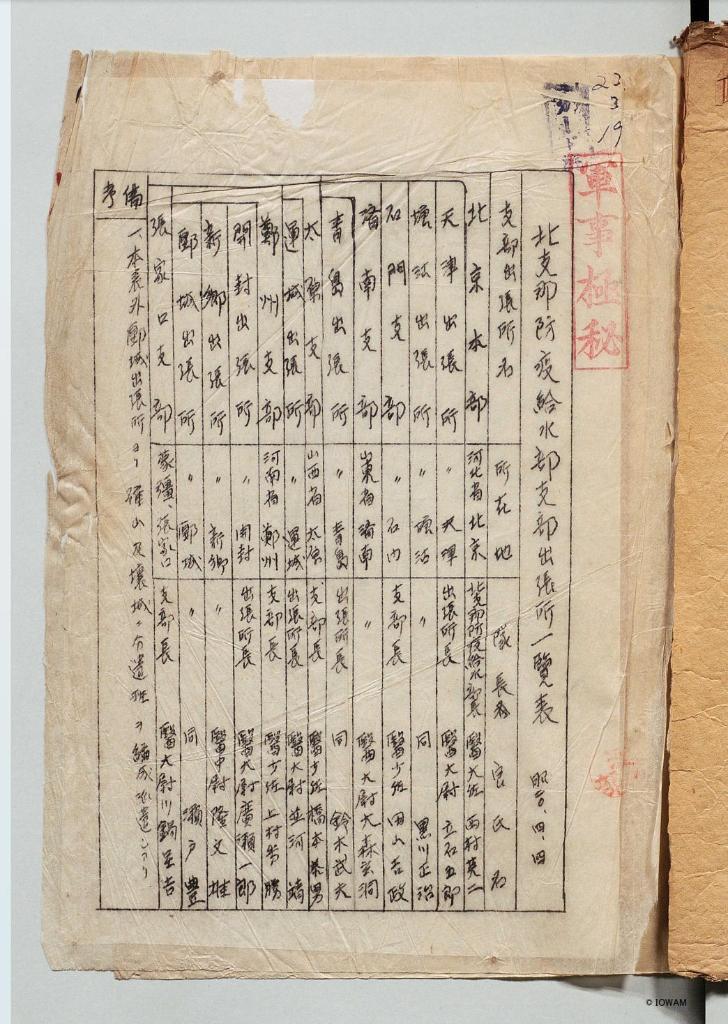 23
3
19
軍事極秘
北支那防疫給水部支部出張所一覽表 昭吉、四、四
支部出張所名 所在地 隊長 官氏名
北京本部 河北省北京 北支那防疫給水部長 醫大佐 西村英二
天津出張所 〃 天津 出張所長 醫大尉 立石五郎
塘沽出張所 〃 塘沽 〃 同 黒川正治
石門支部 〃 石門 支部長 醫少佐 田山吉政
濟南支部 山東省濟南 〃 醫大尉 大森
青島出張所 〃 青島 出張所長 同 鈴木武夫
太原支部 山西省太原 支部長 醫少佐 橋本
運城出張所 〃 運城 出張所長 醫大尉 並河靖
鄭州支部 河南省鄭州 支部長 醫少佐 上村 勝
開封出張所 〃 開封 出張所長 醫大尉 廣瀬一郎
新鄉出張所 〃 新鄉 〃 醫中尉 隆文雄
郾城出張所 〃 郾城 〃 同 瀬戸豊
張家口支部 蒙疆、張家口 支部長 醫大尉 川鍋
備考
一、本表外郾城出張所ヨリ確山及壤城ニ分遣班ヲ編成派遣シアリ
© IOWAM